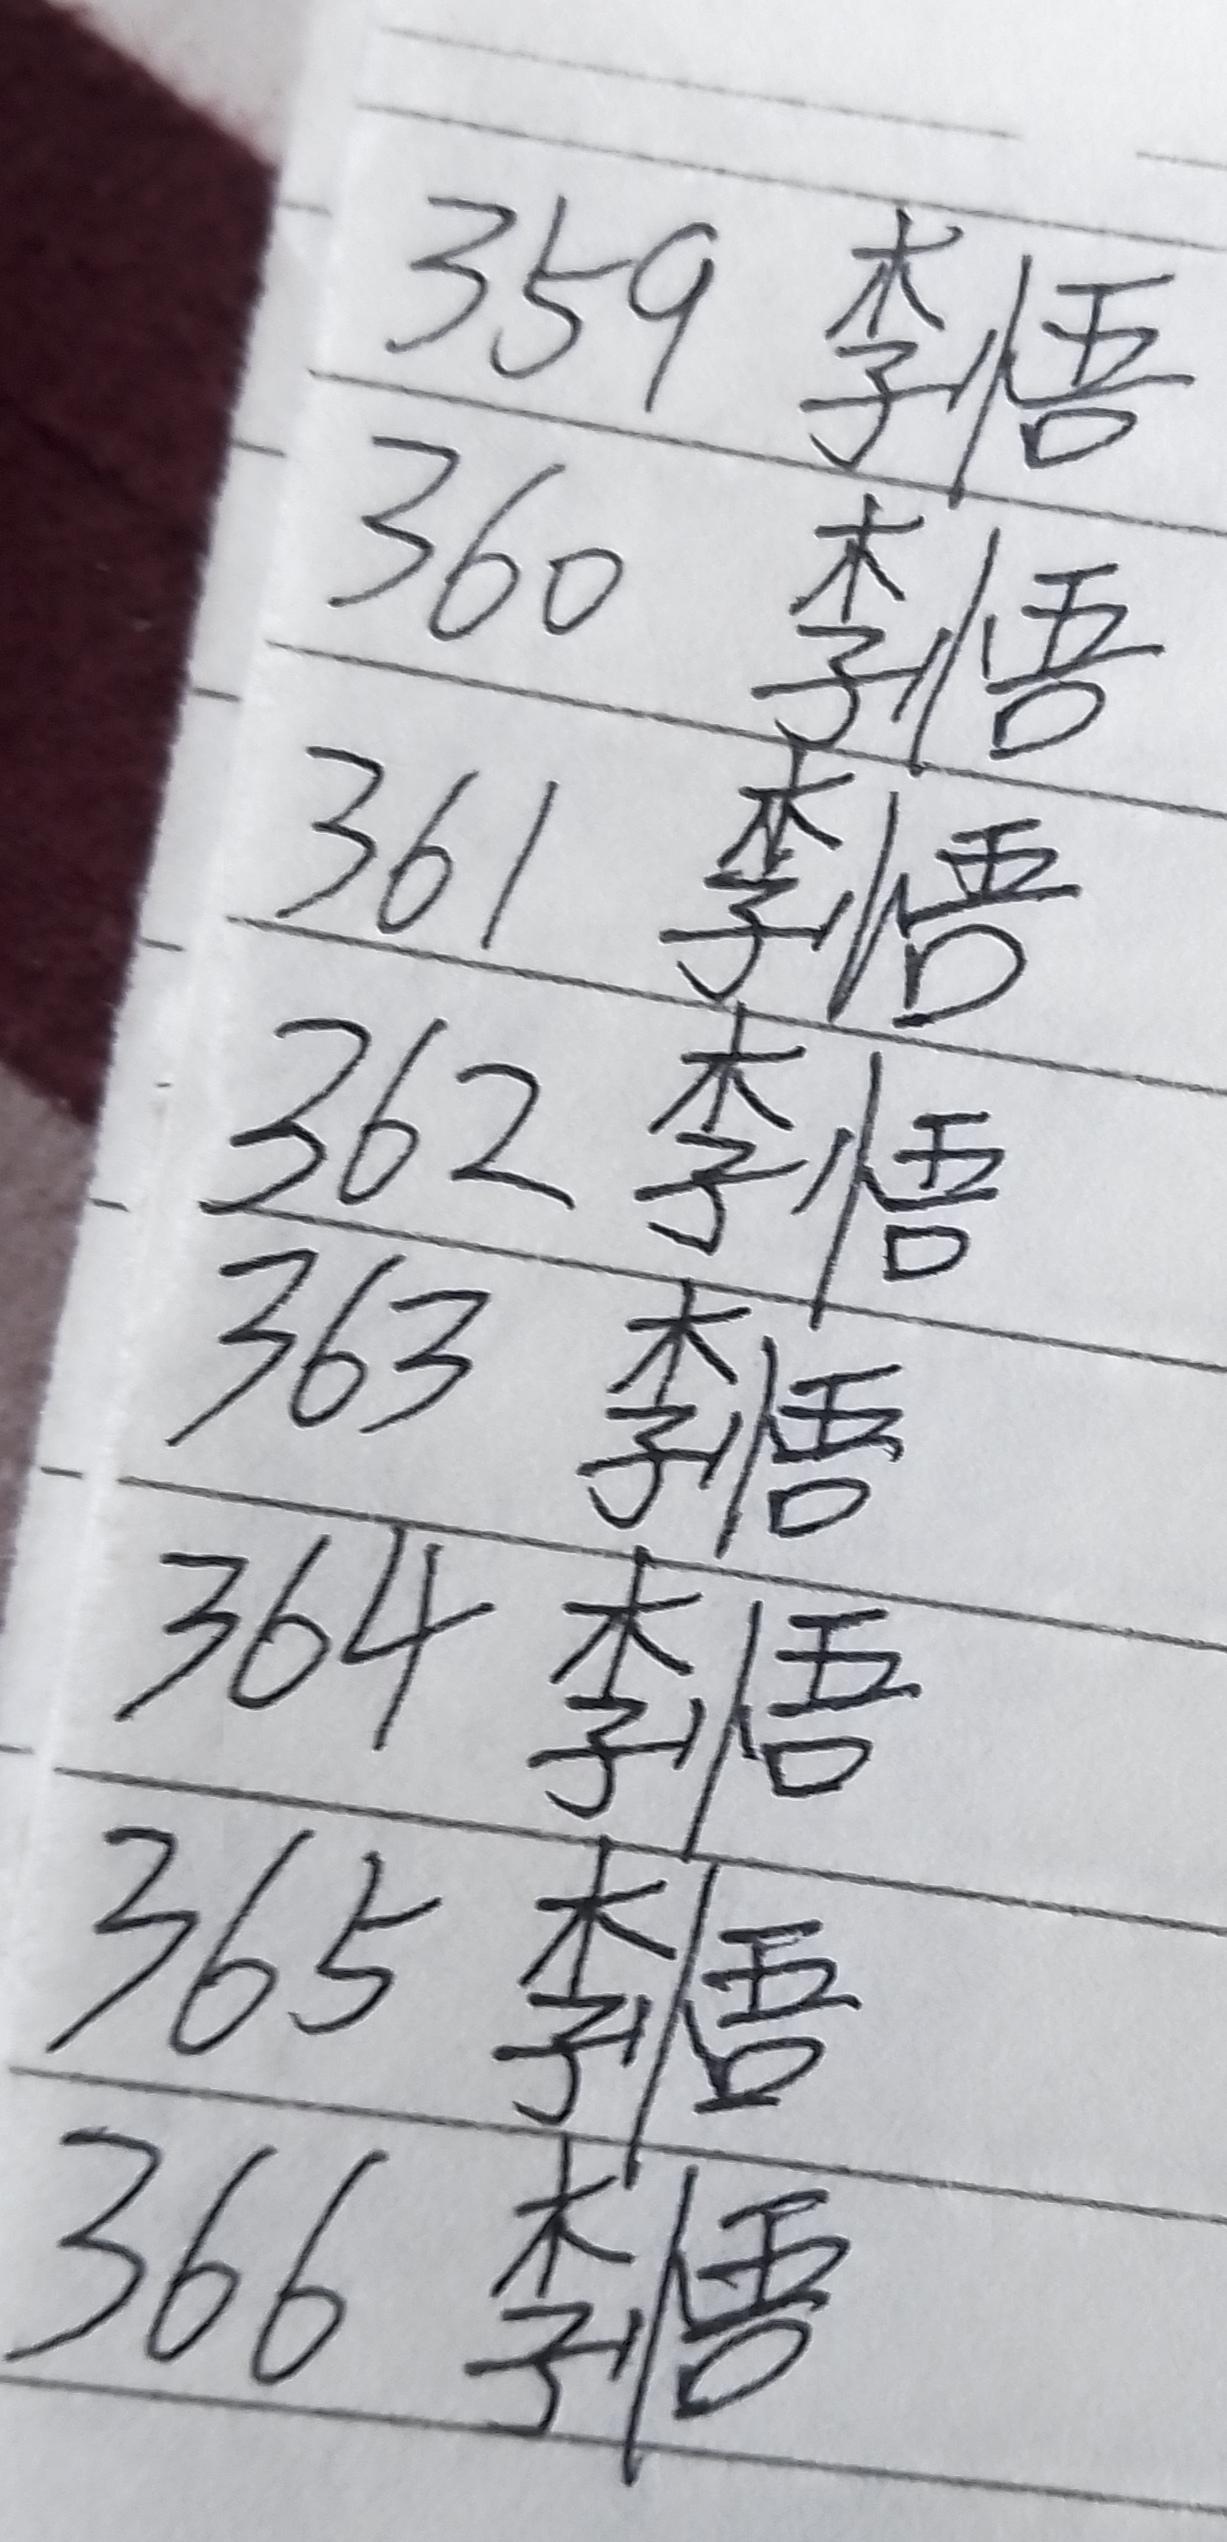 359 李悟
360 李悟
361 李悟
362 李悟
363 李悟
364 李悟
365 李悟
366 李悟